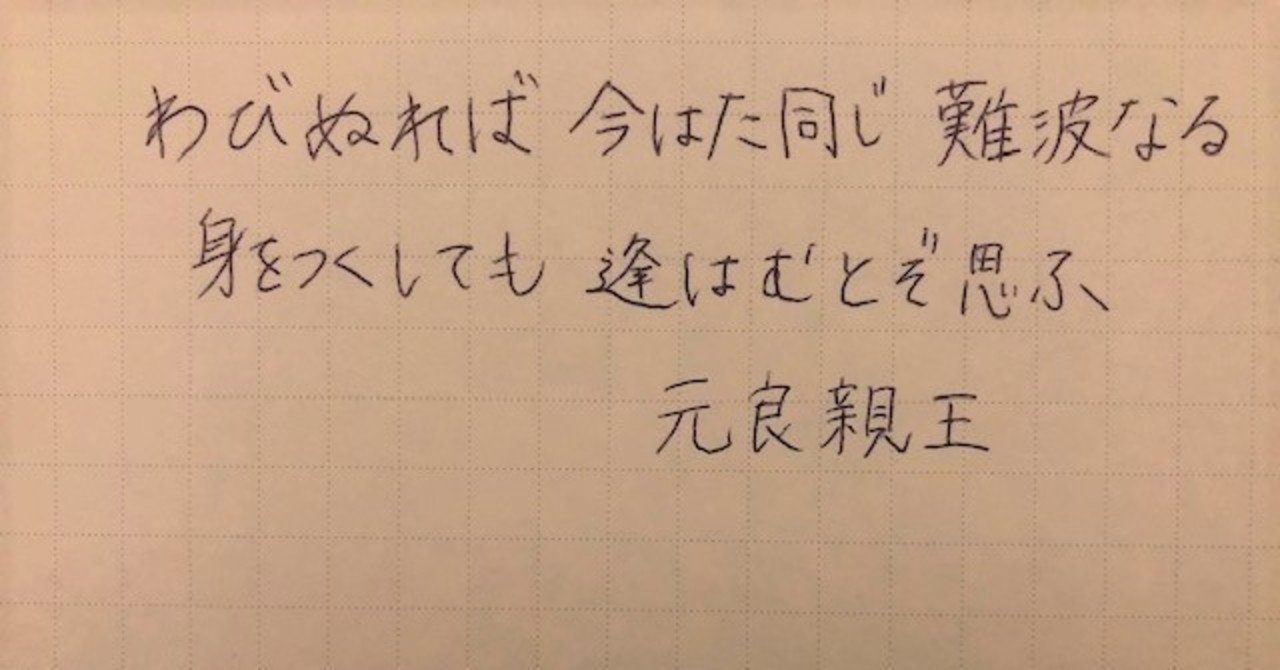 わびぬれば 今はた同じ 難波なる
身をつくしても 逢はむとぞ思ふ
元良親王